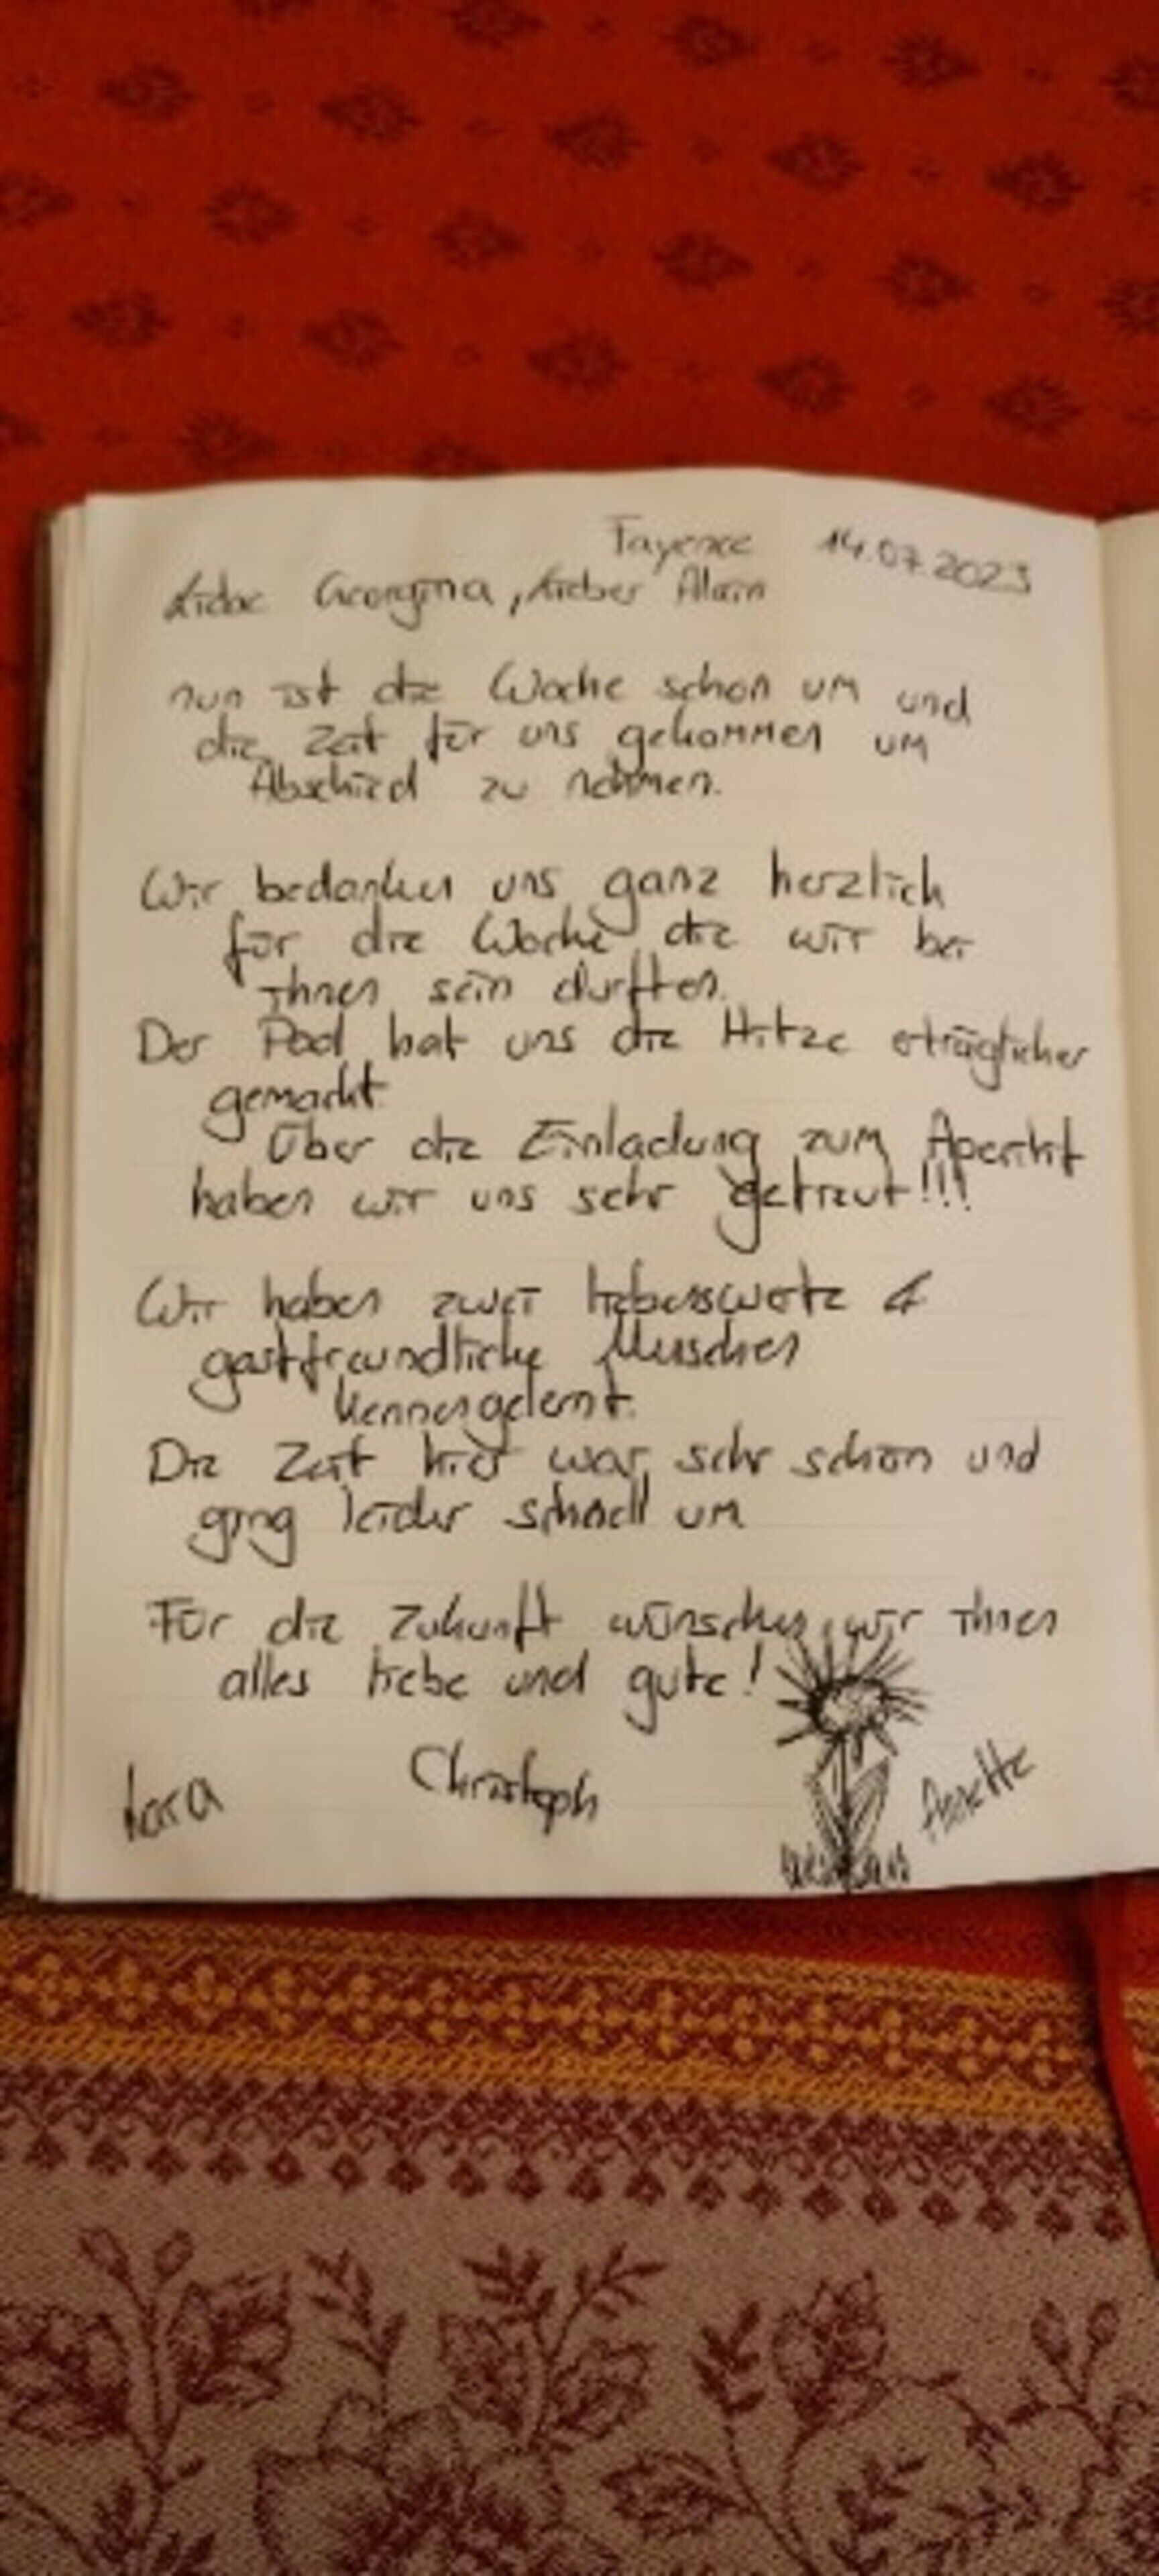 Fayence 14.07.2023
Liebe Georgina, Lieber Alain
nun ist die Woche schon um und
die Zeit für uns gekommen um
Abschied zu nehmen.
Wir bedanken uns ganz herzlich
für die Woche die wir bei
ihnen sein durften.
Der Pool hat uns die Hitze erträglicher
gemacht.
Über die Einladung zum Aperitif
haben wir uns sehr gefreut!!!
Wir haben zwei liebenswerte &
gastfreundliche Menschen
kennengelernt.
Die Zeit hier war sehr schön und
ging leider schnell um
Für die Zukunft wünschen wir ihnen
alles liebe und gute!
Lara Christoph Annette